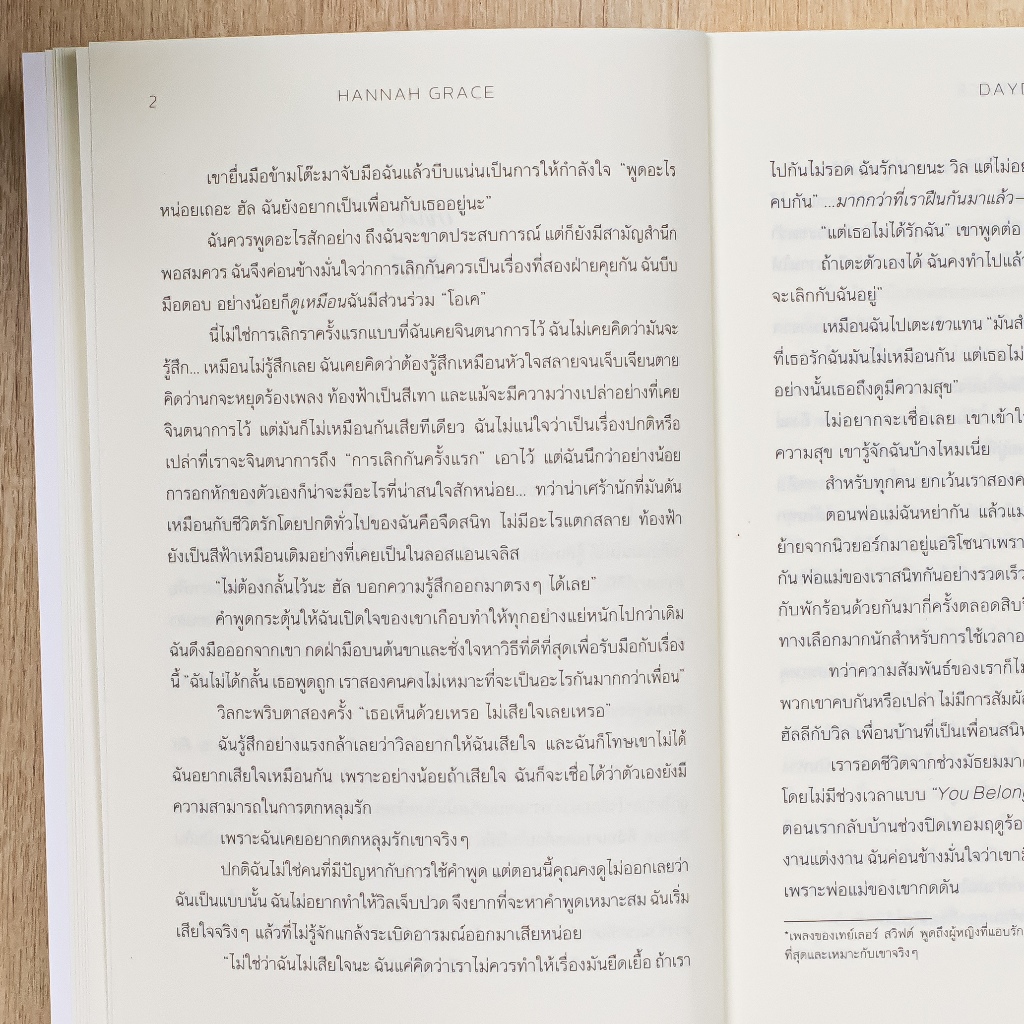 2
HANNAH GRACE
เขายื่นมือข้ามโต๊ะมาจับมือฉันแล้วบีบแน่นเป็นการให้กำลังใจ “พูดอะไร
หน่อยเถอะ ฮัล ฉันยังอยากเป็นเพื่อนกับเธออยู่นะ”
ฉันควรพูดอะไรสักอย่าง ถึงฉันจะขาดประสบการณ์ แต่ก็ยังมีสามัญสำนึก
พอสมควร ฉันจึงค่อนข้างมั่นใจว่าการเลิกกันควรเป็นเรื่องที่สองฝ่ายคุยกัน ฉันบีบ
มือตอบ อย่างน้อยก็ดูเหมือนฉันมีส่วนร่วม “โอเค”
นี่ไม่ใช่การเลิกราครั้งแรกแบบที่ฉันเคยจินตนาการไว้ ฉันไม่เคยคิดว่ามันจะ
รู้สึก... เหมือนไม่รู้สึกเลย ฉันเคยคิดว่าต้องรู้สึกเหมือนหัวใจสลายจนเจ็บเจียนตาย
คิดว่านกจะหยุดร้องเพลง ท้องฟ้าเป็นสีเทา และแม้จะมีความว่างเปล่าอย่างที่เคย
จินตนาการไว้ แต่มันก็ไม่เหมือนกันเสียทีเดียว ฉันไม่แน่ใจว่าเป็นเรื่องปกติหรือ
เปล่าที่เราจะจินตนาการถึง “การเลิกกันครั้งแรก” เอาไว้ แต่ฉันนึกว่าอย่างน้อย
การอกหักของตัวเองก็น่าจะมีอะไรที่น่าสนใจสักหน่อย... ทว่าน่าเศร้านักที่มันดัน
เหมือนกับชีวิตรักโดยปกติทั่วไปของฉันคือจืดสนิท ไม่มีอะไรแตกสลาย ท้องฟ้า
ยังเป็นสีฟ้าเหมือนเดิมอย่างที่เคยเป็นในลอสแอนเจลิส
“ไม่ต้องกลั้นไว้นะ ฮัล บอกความรู้สึกออกมาตรงๆ ได้เลย”
คำพูดกระตุ้นให้ฉันเปิดใจของเขาเกือบทำให้ทุกอย่างแย่หนักไปกว่าเดิม
ฉันดึงมือออกจากเขา กดฝ่ามือบนต้นขาและชั่งใจหาวิธีที่ดีที่สุดเพื่อรับมือกับเรื่อง
นี้ “ฉันไม่ได้กลั้น เธอพูดถูก เราสองคนคงไม่เหมาะที่จะเป็นอะไรกันมากกว่าเพื่อน”
วิลกะพริบตาสองครั้ง “เธอเห็นด้วยเหรอ ไม่เสียใจเลยเหรอ”
ฉันรู้สึกอย่างแรงกล้าเลยว่าวิลอยากให้ฉันเสียใจ และฉันก็โทษเขาไม่ได้
ฉันอยากเสียใจเหมือนกัน เพราะอย่างน้อยถ้าเสียใจ ฉันก็จะเชื่อได้ว่าตัวเองยังมี
ความสามารถในการตกหลุมรัก
เพราะฉันเคยอยากตกหลุมรักเขาจริงๆ
ปกติฉันไม่ใช่คนที่มีปัญหากับการใช้คำพูด แต่ตอนนี้คุณคงดูไม่ออกเลยว่า
ฉันเป็นแบบนั้น ฉันไม่อยากทำให้วิลเจ็บปวด จึงยากที่จะหาคำพูดเหมาะสม ฉันเริ่ม
เสียใจจริงๆ แล้วที่ไม่รู้จักแกล้งระเบิดอารมณ์ออกมาเสียหน่อย
“ไม่ใช่ว่าฉันไม่เสียใจนะ ฉันแค่คิดว่าเราไม่ควรทำให้เรื่องมันยืดเยื้อ ถ้าเรา
ไปกันไม่รอด ฉันรักนายนะ วิล แต่ไม่อย
คบกัน” ...มากกว่าที่เราฝืนกันมาแล้ว—
“แต่เธอไม่ได้รักฉัน” เขาพูดต่อ
ถ้าเตะตัวเองได้ ฉันคงทำไปแล้ว
จะเลิกกับฉันอยู่”
เหมือนฉันไปเตะเขาแทน “มันส
ที่เธอรักฉันมันไม่เหมือนกัน แต่เธอไม่
อย่างนั้นเธอถึงดูมีความสุข”
ไม่อยากจะเชื่อเลย เขาเข้าใ
ความสุข เขารู้จักฉันบ้างไหมเนี่ย
สำหรับทุกคน ยกเว้นเราสองค
ตอนพ่อแม่ฉันหย่ากัน แล้วแม
ย้ายจากนิวยอร์กมาอยู่แอริโซนาเพรา
กัน พ่อแม่ของเราสนิทกันอย่างรวดเร็ว
กับพักร้อนด้วยกันมากี่ครั้งตลอดสิบ
ทางเลือกมากนักสำหรับการใช้เวลาอ
ทว่าความสัมพันธ์ของเราก็ไม
พวกเขาคบกันหรือเปล่า ไม่มีการสัมผั
ฮัลลีกับวิล เพื่อนบ้านที่เป็นเพื่อนสนิ
เรารอดชีวิตจากช่วงมัธยมมา
โดยไม่มีช่วงเวลาแบบ “You Belong
ตอนเรากลับบ้านช่วงปิดเทอมฤดูร้อ
งานแต่งงาน ฉันค่อนข้างมั่นใจว่าเขา
เพราะพ่อแม่ของเขากดดัน
*เพลงของเทย์เลอร์ สวิฟต์ พูดถึงผู้หญิงที่แอบรัก
ที่สุดและเหมาะกับเขาจริงๆ